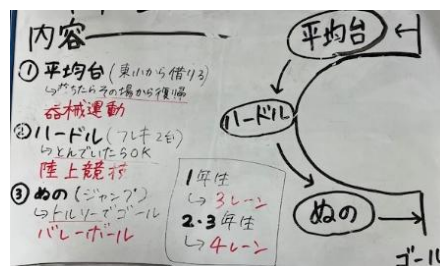 内容
① 平均台（東小から借りる）
↳落ちたらその場から復帰
器械運動
② ハードル（フレキ2台）
↳とんでいたらOK
陸上競技
③ ぬの（ジャンプ）
↳トルソーでゴール
バレーボール
1年生
↳3レーン
2・3年生
↳4レーン
平均台
ハードル
ぬの
ゴール